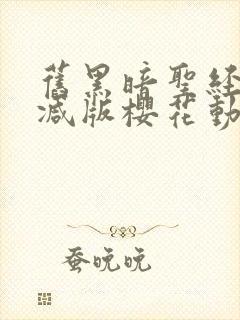 舊黑暗聖經
减版櫻花動
蚕晚晚